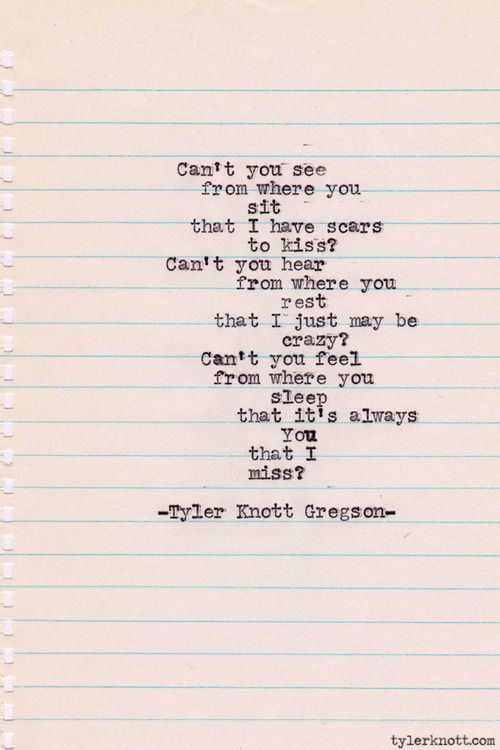 Can't you see
from where you
sit
that I have scars
to kiss?
Can't you hear
from where you
rest
that I just may be
crazy?
Can't you feel
from where you
sleep
that it's always
You
that I
miss?
-Tyler Knott Gregson-
tylerknott.com